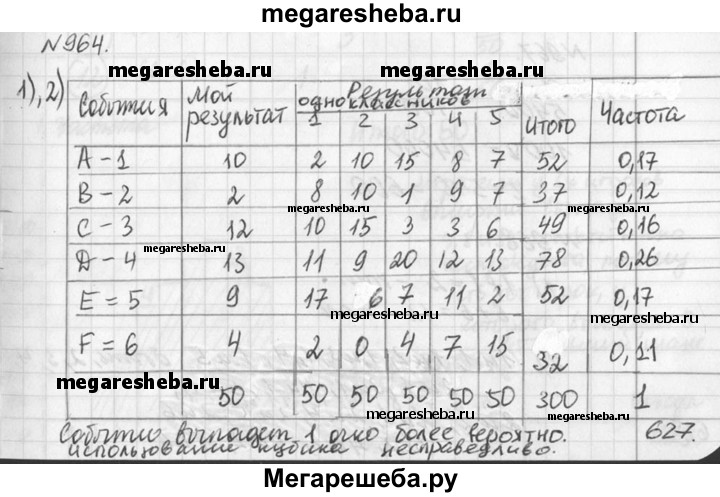 megaresheba.ru
№964.
megaresheba.ru
1), 2)
События Мой результат Результаты одноклассников Итого Частота
1 2 3 4 5
A - 1 10 2 10 15 8 7 52 0,17
B - 2 2 8 10 1 9 7 37 0,12
megaresheba.ru megaresheba.ru
C - 3 12 10 15 3 3 6 49 0,16
megaresheba.ru
D - 4 13 11 9 20 12 13 78 0,26
megaresheba.ru
E = 5 9 17 6 7 11 2 52 0,17
F = 6 4 2 0 4 7 15 32 0,11
megaresheba.ru
50 50 50 50 50 50 300 1
megaresheba.ru
Событие выпадет 1 очко более вероятно. 627.
использование кубика несправедливо.
Мегарешеба.ру